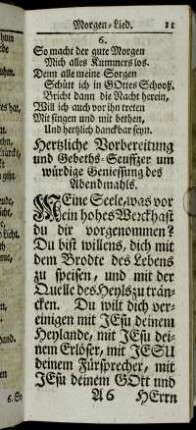 Morgen-Lied. 11
6.
So macht der gute Morgen
Mich alles Kummers los.
Denn alle meine Sorgen
Schütt ich in GOttes Schooß.
Bricht dann die Nacht herein,
Will ich auch vor ihn treten
Mit singen und mit bethen,
Und hertzlich danckbar seyn.
Hertzliche Vorbereitung
und Gebeths-Seuffzer um
würdige Geniessung des
Abendmahls.
MEine Seele, was vor
ein hohes Werck hast
du dir vorgenommen?
Du bist willens, dich mit
dem Brodte des Lebens
zu speisen, und mit der
Quelle des Heyls zu trän-
cken. Du wilt dich ver-
einigen mit JEsu deinem
Heylande, mit JEsu dei-
nem Erlöser, mit JESU
deinem Fürsprecher, mit
JEsu deinem GOtt und
A 6 HErrn